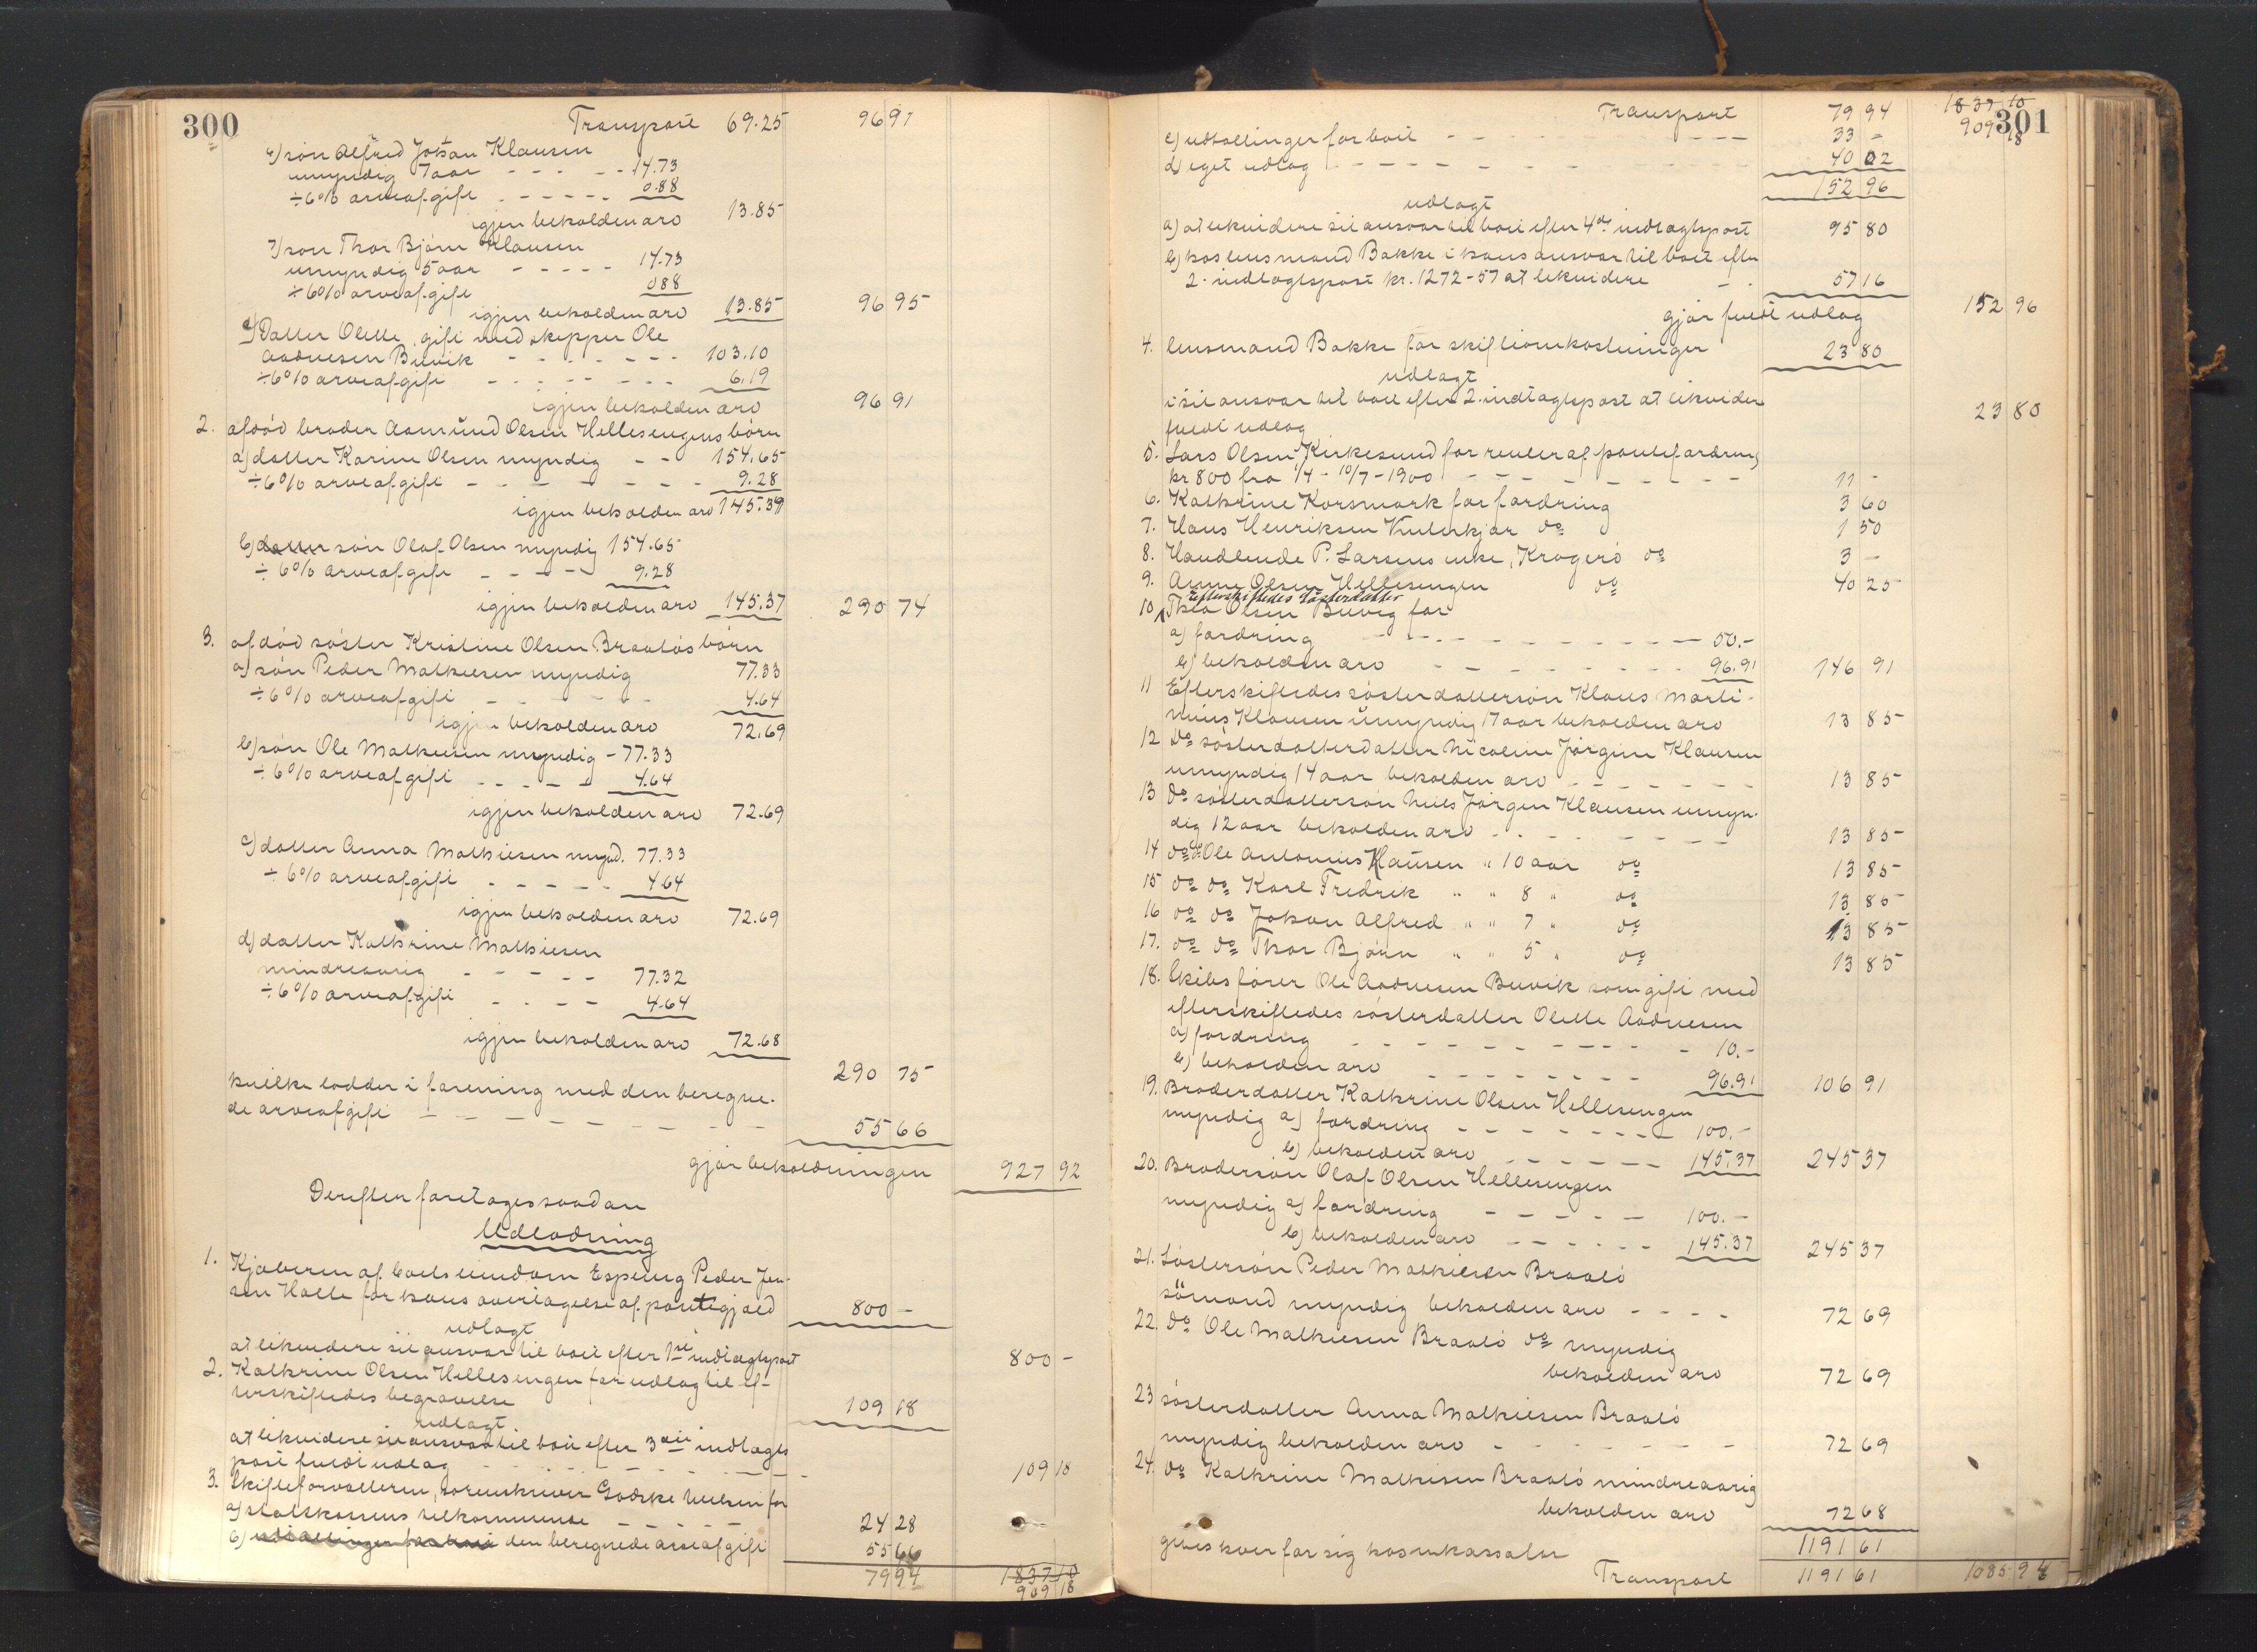 300
Transport 69.25 96 91
4) søn Alfred Johan Klausen
umyndig 7 aar - - - - - 14.73
÷ 6% arveafgift - - - - - 0.88
igjen beholden arv 13.85
7) søn Thor Bjørn Klausen
umyndig 5 aar - - - - - 14.73
÷ 6% arveafgift 088
igjen beholden arv 13.85 96 95
c) Datter Olette, gift med skipper Ole
Aadnesen Buvik - - - - - - 103.10
÷ 6% arveafgift - - - - - - 6.19
igjen beholden arv 96 91
2. afdød broder Aamund Olsen Hellesengens børn
a) datter Karine Olsen myndig - - 154.65
÷ 6% arveafgift - - - - - - - 9.28
igjen beholden arv 145.37
b) datter søn Olaf Olsen myndig 154.65
÷ 6% arveafgift - - - - 9.28
igjen beholden arv 145.37 290 74
3. afdød søster Kristine Olsen Braatøs børn
a) søn Peder Mathiesen myndig 77.33
÷ 6% arveafgift - - - - 4.64
igjen beholden arv 72.69
b) søn Ole Mathiesen myndig - 77.33
÷ 6% arveafgift - - - - 4.64
igjen beholden arv 72.69
c) datter Anna Mathiesen mynd. 77.33
÷ 6% arveafgift - - - - - 4.64
igjen beholden arv 72.69
d) datter Kathrine Mathiesen
mindreaarig - - - - - 77.32
÷ 6% arveafgift - - - - 4.64
igjen beholden arv 72.68
290 75
hvilke lodder i forening med den beregne-
de arveafgift - - - - - - - - 55 66
gjør beholdningen 927 92
Derefter foretages saadan
Udlodning
1. Kjøberen af boets eiendom Esping Peder Jen-
sen Halle for hans overtagelse af pantegjæld 800 -
udlagt
at likvidere sit ansvar til boet efter 1ste indtægtspost 800 -
2. Kathrine Olsen Hellesengen for udlæg til ef-
terskiftedes begravelse 109 18
udlagt
at likvidere sit ansvar til boet efter 3die indtægts
post fuldt udlæg - - - - - - - - 109 18
3. Skifteforvalteren, sorenskriver Godske Nielsen for
a) statskassens tilkommende - - - - - 24 28
b) udtællinger for boet den beregnede arveafgift 55 66
79 94 1837 10
909 18
301
Transport 79 94 1837 10
909 18
c) udtællinger for boet - - - - 33 -
d) eget udlæg - - - - - - - - 40 02
152 96
udlagt
a) at likvidere sit ansvar til boet efter 4de indtægtspost 95 80
b) hos lensmand Bakke i hans ansvar til boet efter
2. indtægtspost kr. 1272-57 at likvidere - - 57 16
gjør fuldt udlæg 152 96
4. lensmand Bakke for skifteomkostninger 23 80
udlagt
i sit ansvar til boet efter 2. indtægtspost at likvidere
fuldt udlæg 23 80
5. Lars Olsen Kirkesund for renter af pantefordring
kr 800 fra 1/4 - 10/7 - 1900 - - - - - - - 11 -
6. Kathrine Korsmark for fordring 3 60
7. Hans Henriksen do 1 50
8. Handlende P. Larsens enke, Kragerø do 3 -
9. Anne Olsen Hellesengen do 40 25
efterskiftedes søsterdatter
10 Thea Olsen Buvig for
a) fordring - - - - - - - - - 50.-
b) beholden arv - - - - - - - - 96.91 146 91
11 Efterskiftedes søsterdattersøn Klaus Marti-
nius Klausen umyndig 17 aar beholden arv 13 85
12 do søsterdatterdatter Nicoline Jørgine Klausen
umyndig 14 aar beholden arv - - - - - - 13 85
13 do søsterdattersøn Niels Jørgen Klausen umyn-
dig 12 aar beholden arv - - - - - - 13 85
14 do do Ole Antonius Klausen " 10 aar do 13 85
15 do do Karl Fredrik " " 8 " do 13 85
16 do do Johan Alfred " " 7 " do 13 85
17. do do Thor Bjørn " " 5 " do 13 85
18. Skibsfører Ole Aadnesen Buvik som gift med
efterskiftedes søsterdatter Olette Aadnesen
a) fordring - - - - - - - - - - 10.-
b) beholden arv - - - - - - - 96.91 106 91
19. Broderdatter Kathrine Olsen Hellesengen
myndig a) fordring - - - - - - - 100.-
b) beholden arv - - - - - - 145.37 245 37
20. Brodersøn Olaf Olsen Hellesengen
myndig a) fordring - - - - - 100.-
b) beholden arv - - - - - - 145.37 245 37
21. Søstersøn Peder Mathiesen Braatø
sømand myndig beholden arv - - - - 72 69
22. do Ole Mathiesen Braatø do myndig
beholden arv 72 69
23 søsterdatter Anna Mathiesen Braatø
myndig beholden arv - - - - - - 72 69
24. do Kathrine Mathisen Braatø mindreaarig
beholden arv 72 68
1191 61
gives hver for sig hos inkassator
Transport 1191 61 1085 94